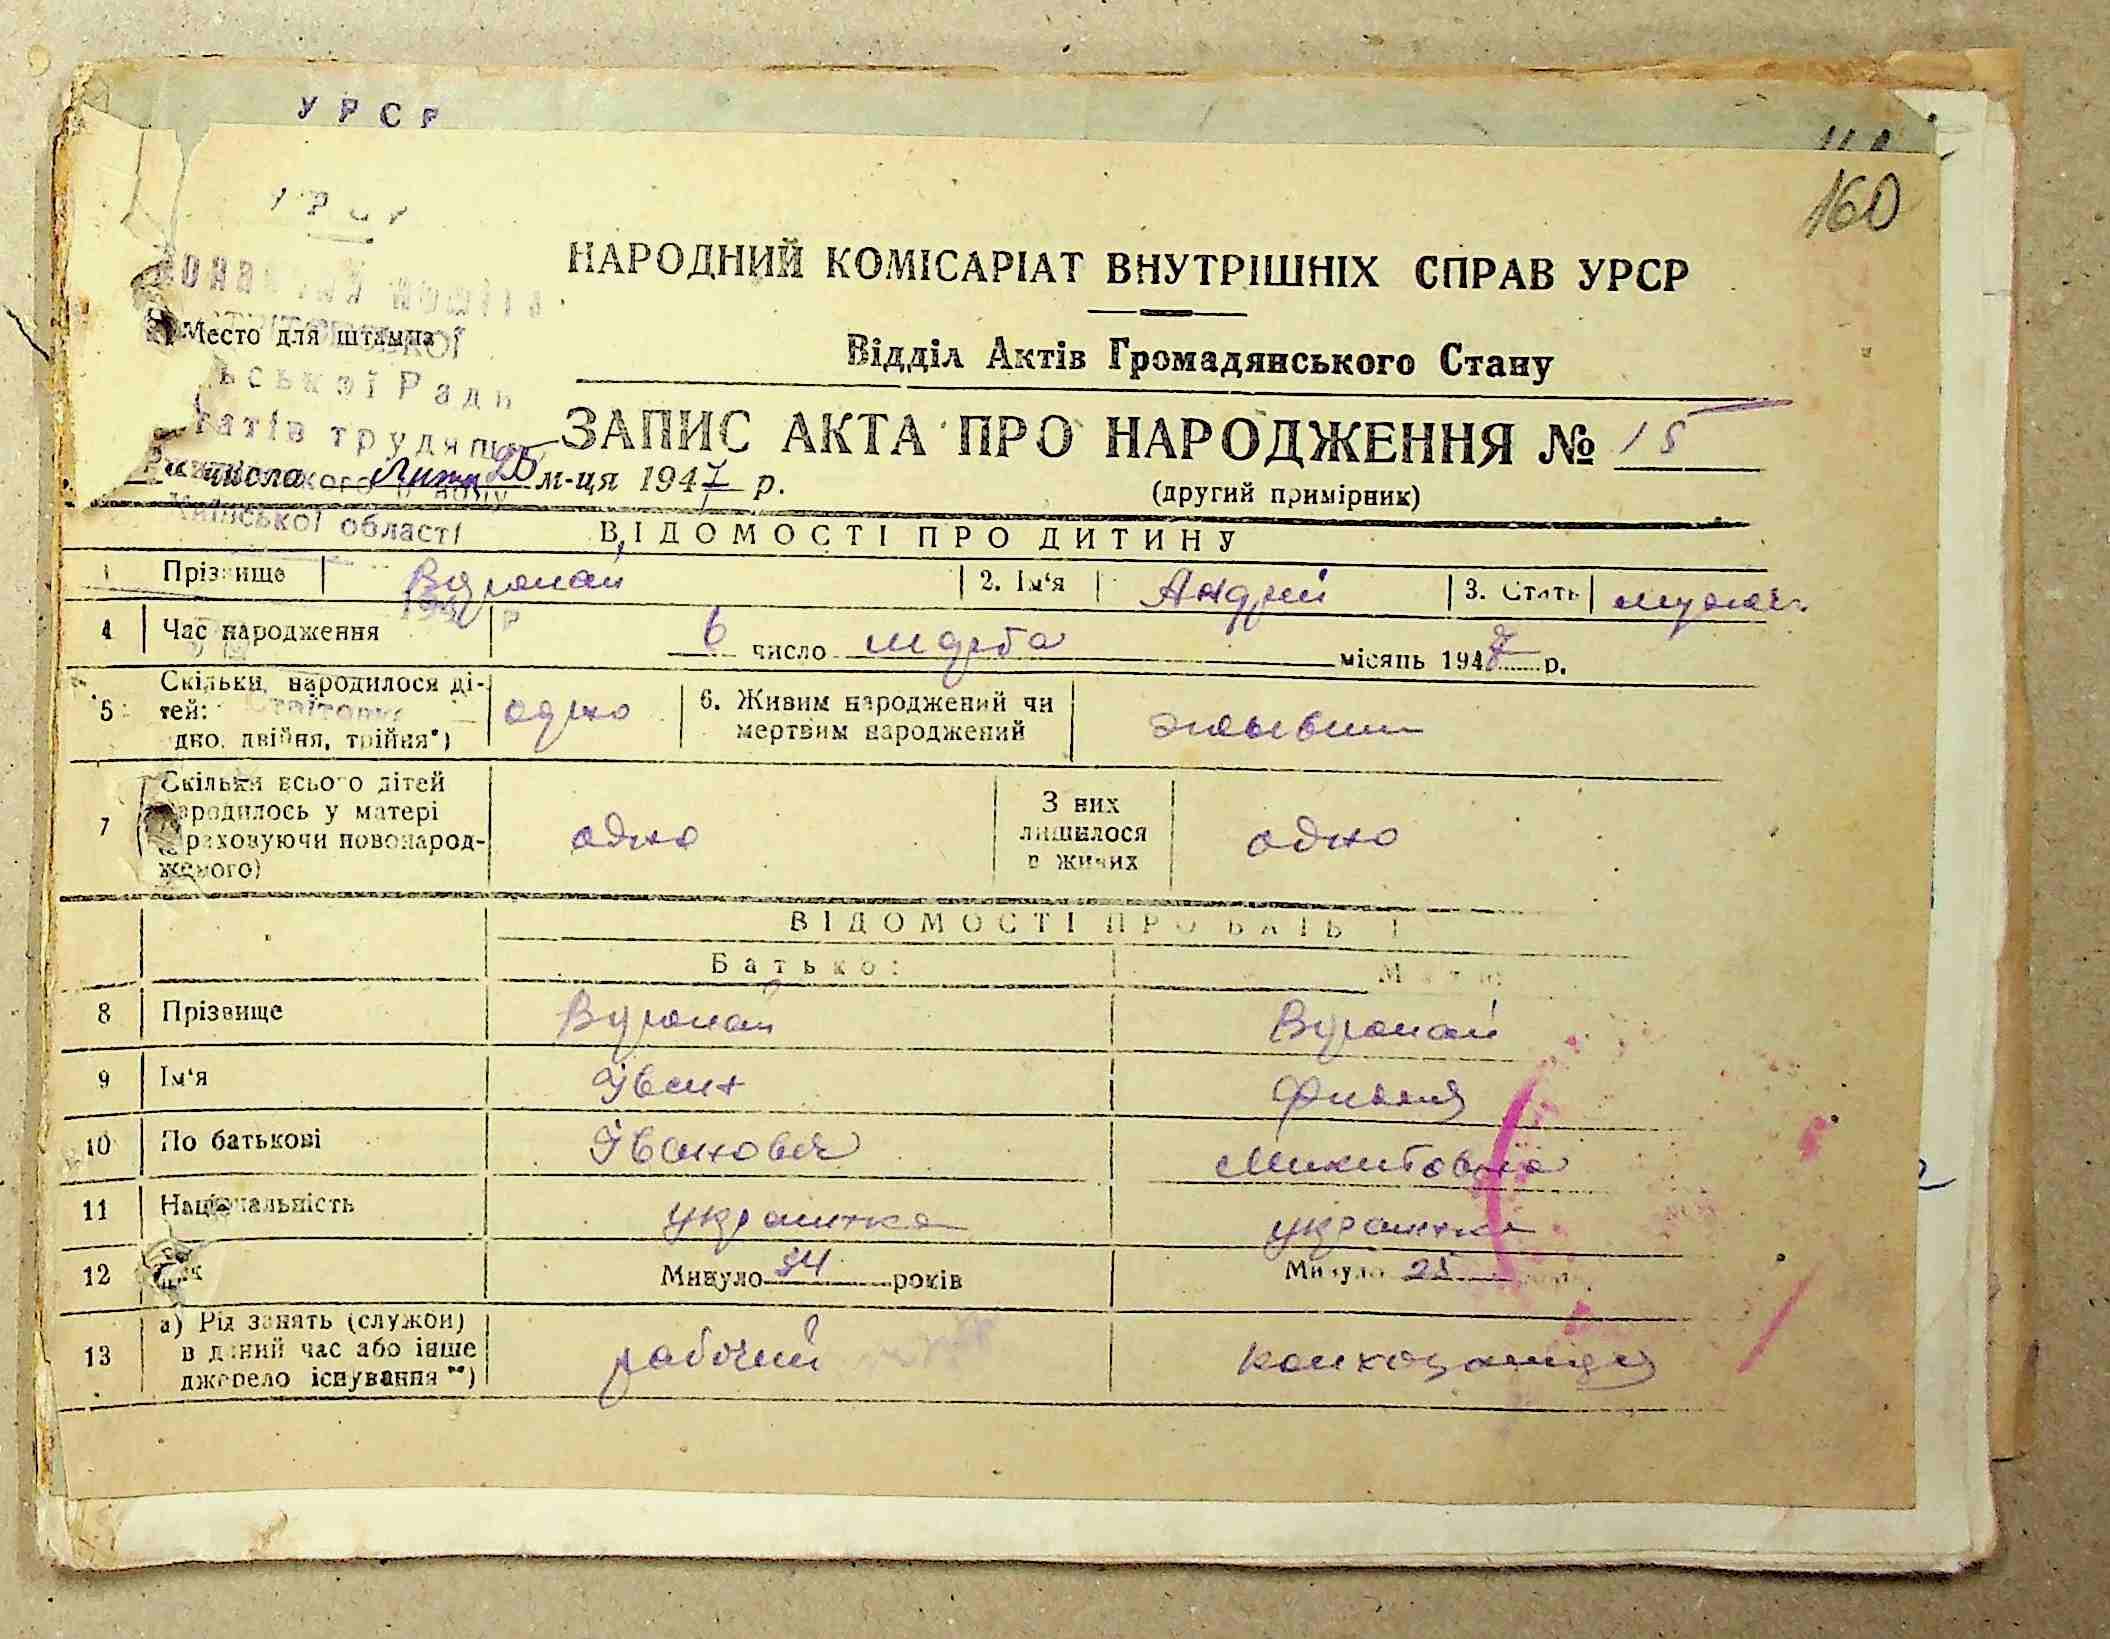 УРСР
160
НАРОДНИЙ КОМІСАРІАТ ВНУТРІШНІХ СПРАВ УРСР
Место для штампа
Відділ Актів Громадянського Стану
ської Ради
татів трудящ
ЗАПИС АКТА ПРО НАРОДЖЕННЯ № 15
числа м-ця 1947 р.
(другий примірник)
Київської області
ВІДОМОСТІ ПРО ДИТИНУ
1 Прізвище 2. Ім'я Андрій 3. Стать
4 Час народження 6 число марта місяць 1947 р.
5 Скільки народилося ді-
тей:
одно, двійня, трійня*) одно
6. Живим народжений чи
мертвим народжений
7 Скільки всього дітей
народилось у матері
(враховуючи новонарод-
женого) одно
З них
лишилося
в живих одно
ВІДОМОСТІ ПРО БАТЬКІВ
Батько: Мати:
8 Прізвище
9 Ім'я Іван
10 По батькові Іванович Микитовна
11 Національність украинка украинка
12 Вік Минуло 34 років Минуло 25
13 а) Рід занять (служби)
в даний час або інше
джерело існування **) рабочий